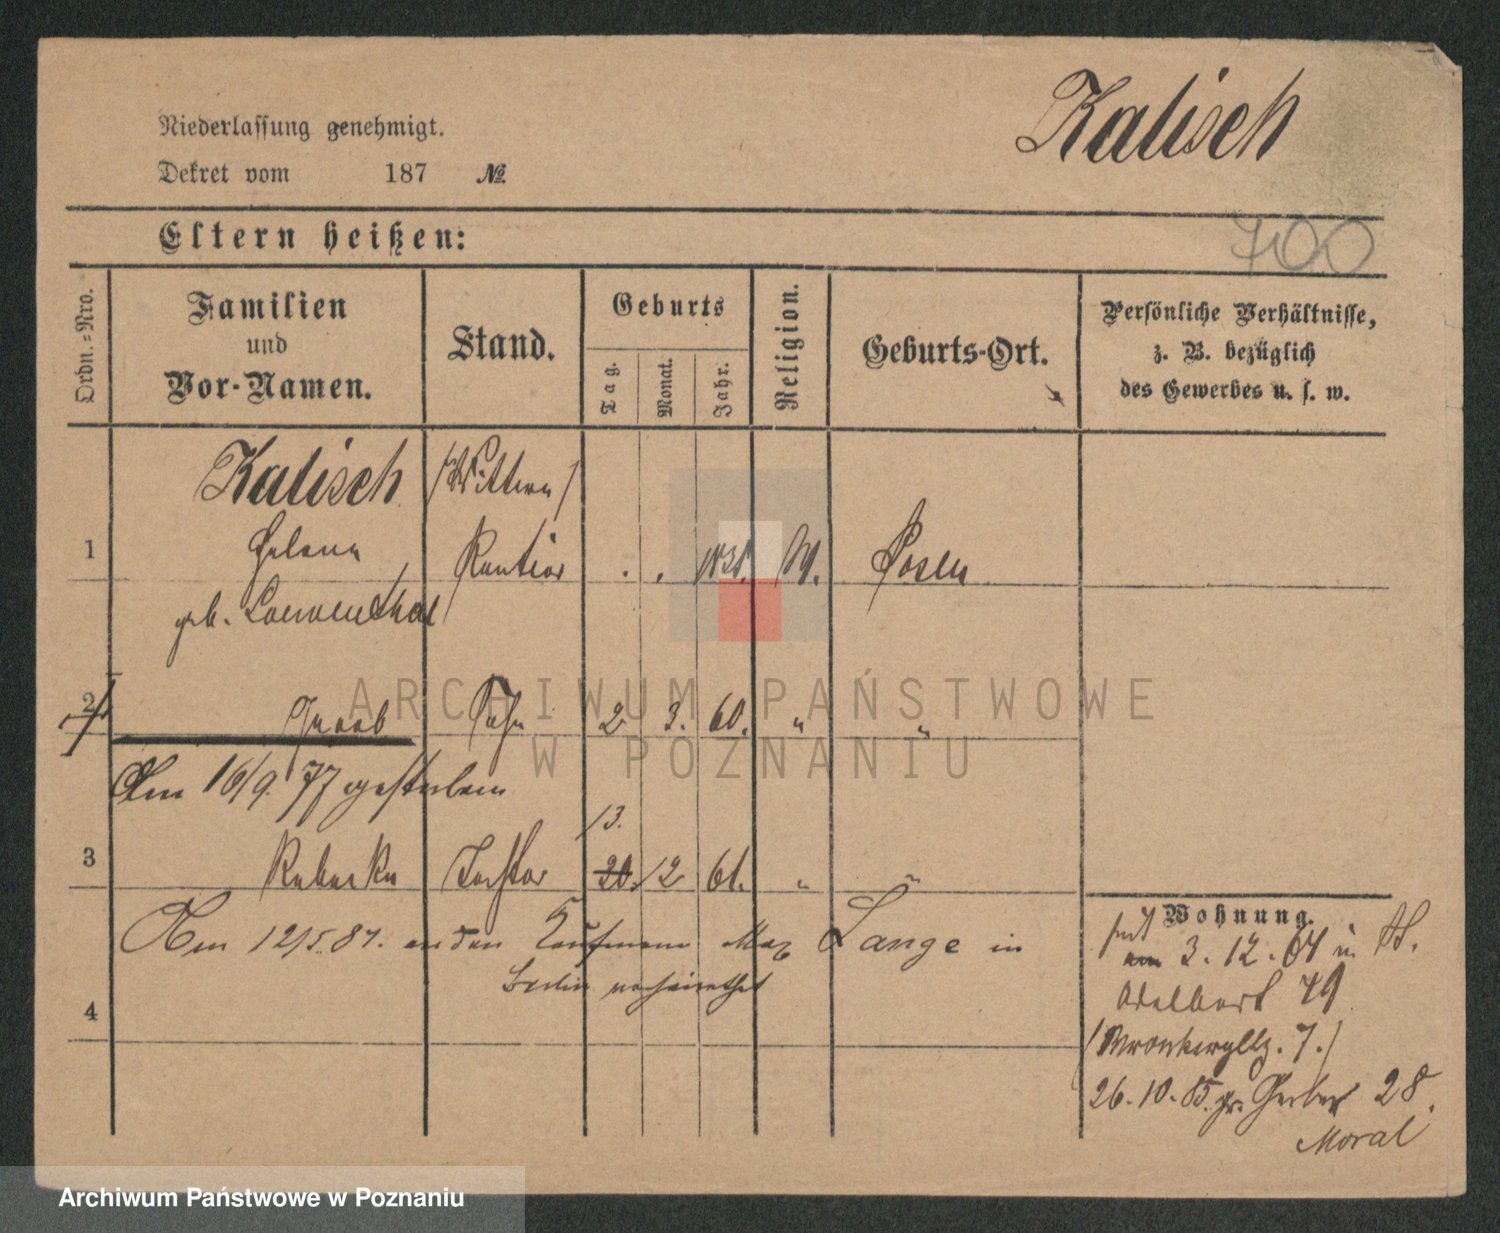 Kalisch
Niederlassung genehmigt.
Dekret vom 187 №
700
Eltern heißen:
Ordn.-Nro.
Familien
und
Vor-Namen.
Stand.
Geburts
Tag.
Monat.
Jahr.
Religion.
Geburts-Ort.
Persönliche Verhältnisse,
z. B. bezüglich
des Gewerbes u. s. w.
Kalisch (Wittwe)
1 Helene Rentier . . M. Posen
geb. Loewenthal
2 Jacob Sohn 2 3. 60. " "
Am 16/9. 77 gestorben
13.
3 Rebecka Tochter 20. 12 61. " "
Am 12/5. 87. an den Kaufmann Max Lange in
Berlin verheirathet
4
Wohnung.
seit am 3. 12. 64 in St.
Adalbert 49
(Wronkerstr. 7.)
26. 10. 85. gr. Gerber 28.
Moral
ARCHIWUM PAŃSTWOWE
W POZNANIU
Archiwum Państwowe w Poznaniu